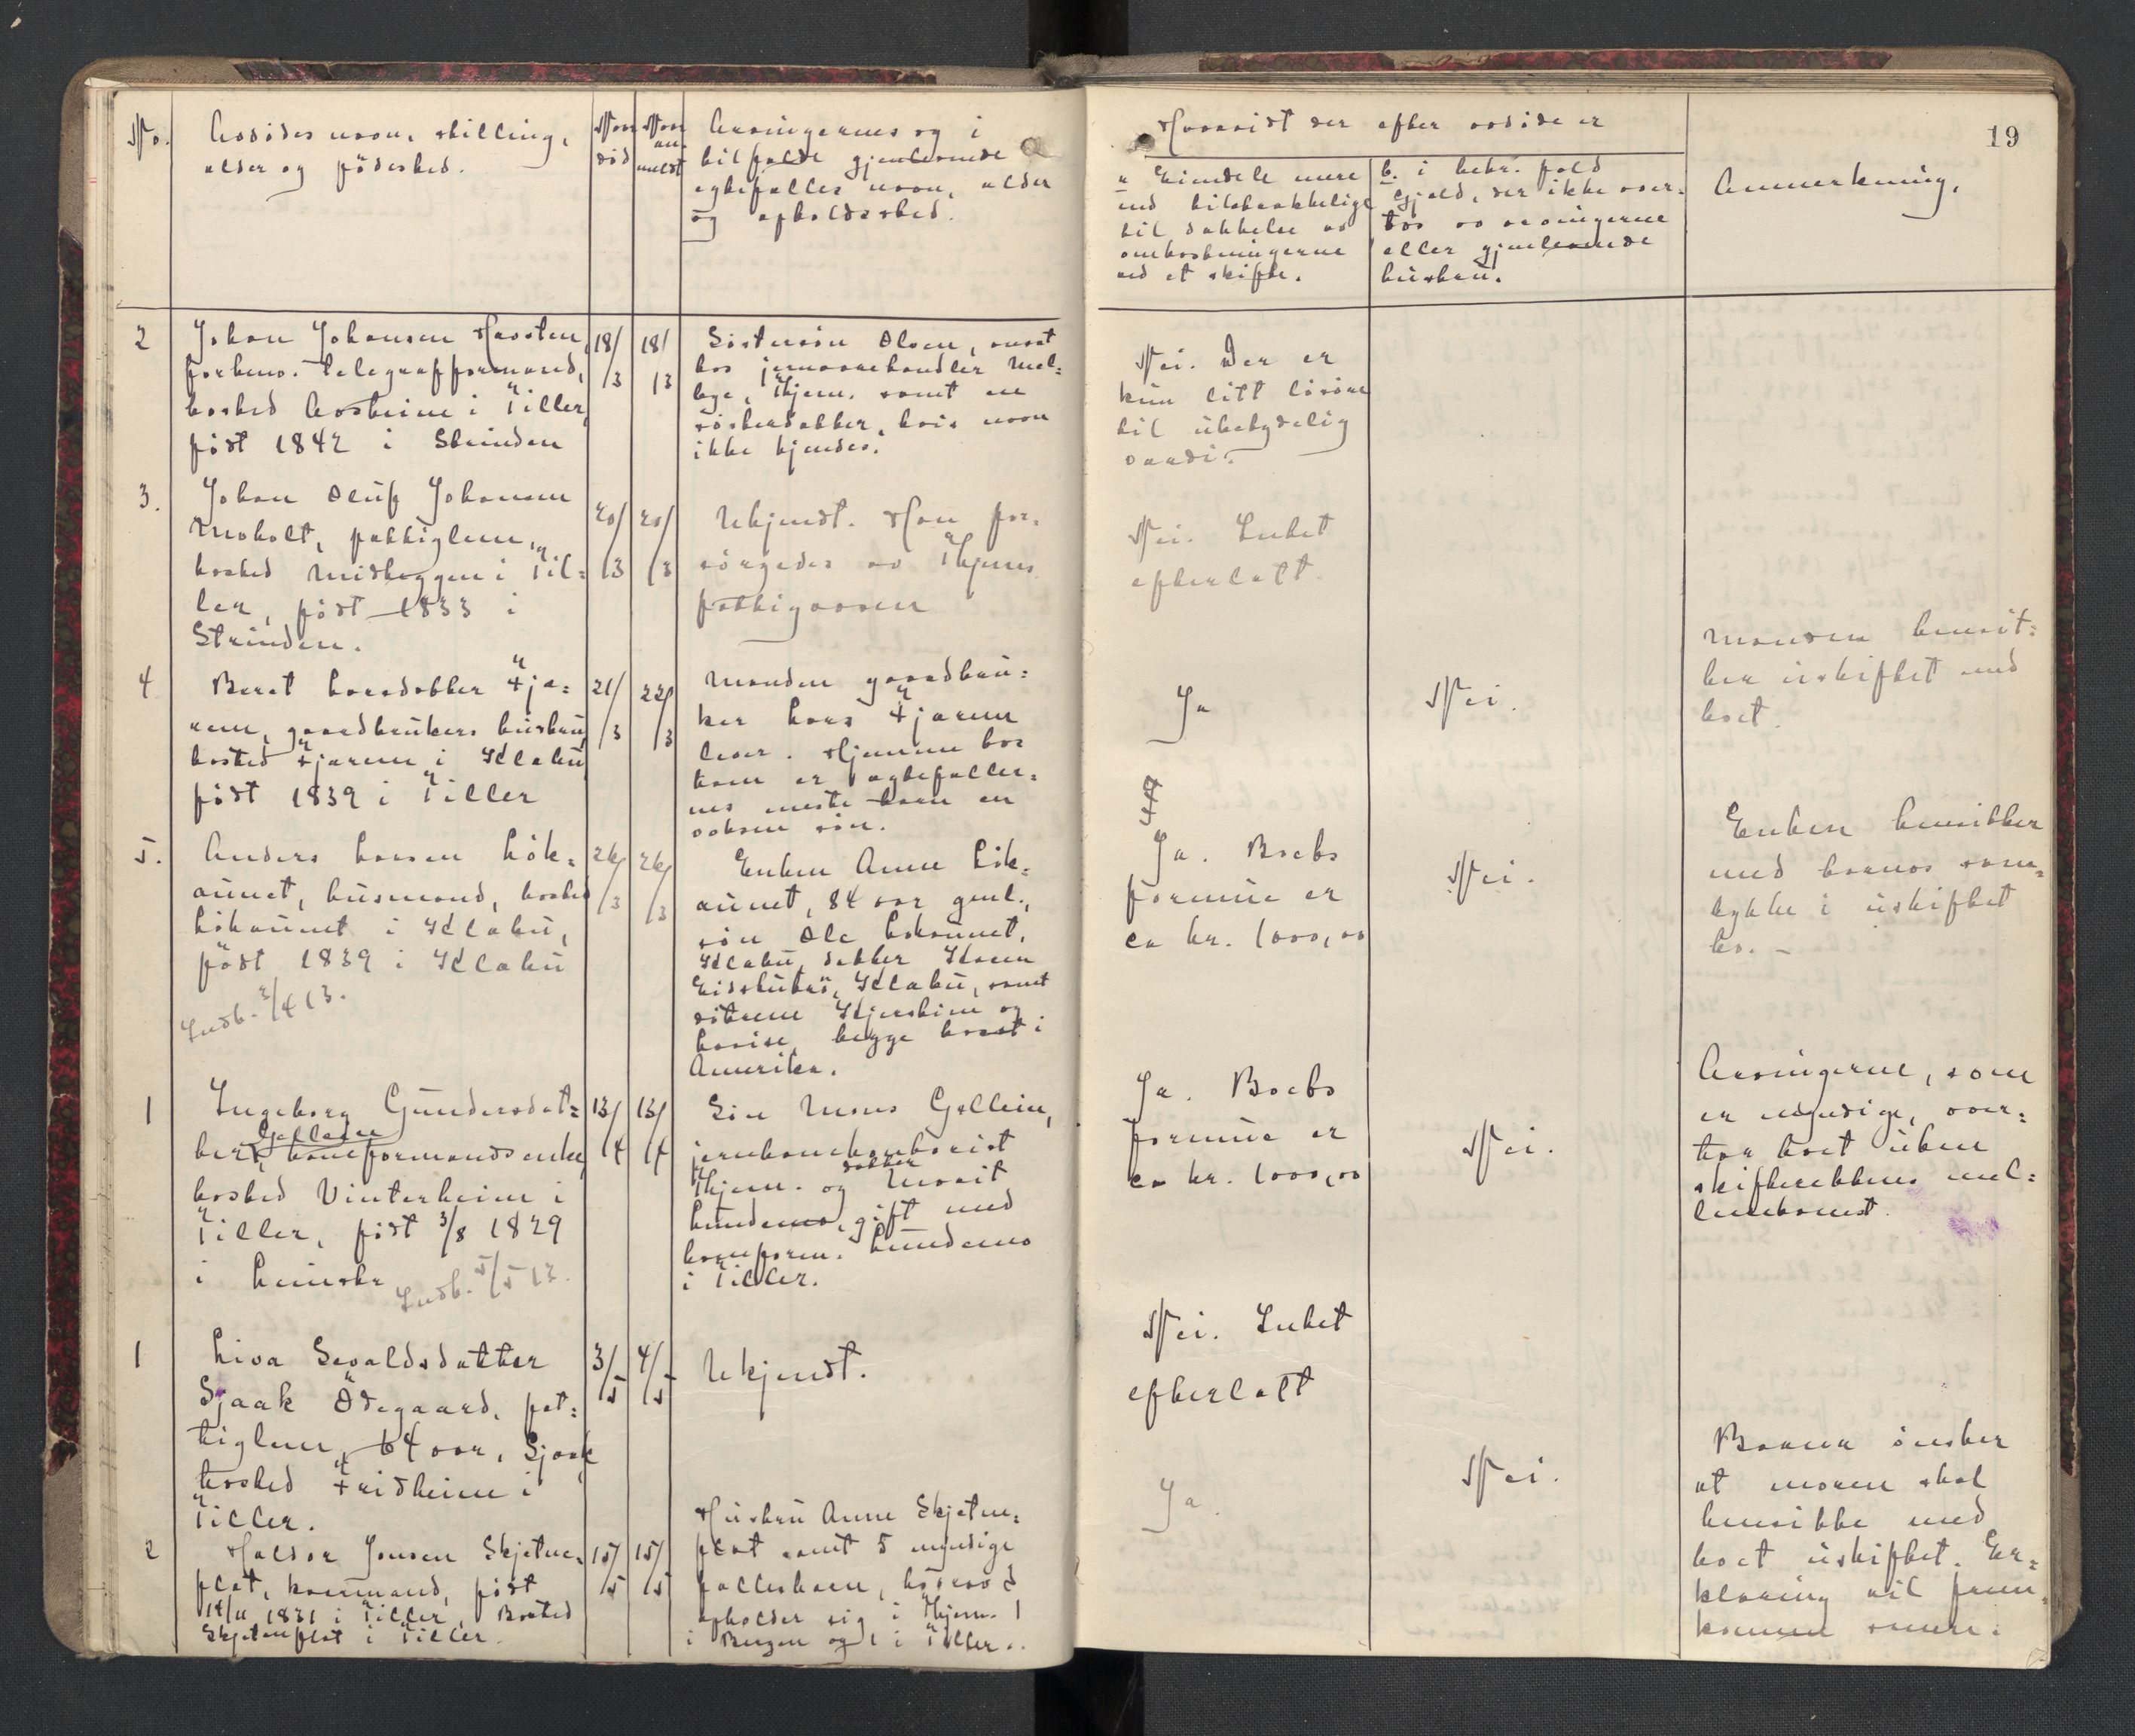 19
No.
Avdødes navn, stilling,
alder og fødested.
Naar
død
Naar
an-
meldt
Arvingernes og i
tilfælde gjenlevende
egtefælles navn, alder
og opholdssted.
Hvorvidt der efter avdøde er
a Eiendele mere
end tilstrækkelige
til dækkelse av
omkostningerne
ved et skifte.
b. i bekr. fald
Gjæld, der ikke over-
tas av arvingerne
eller gjenlevende
hustru.
Anmerkning.
2
Johan Johansen
forhenv. telegrafformand,
bosted Aasheim i Tiller,
født 1842 i Strinden
18/
/3
18/
/3
Søstersøn Olsen, ansat
hos jernvarehandler Mel-
bye, Thjem. samt en
søsterdatter, hvis navn
ikke kjendes.
Nei. Der er
kun litt løsøre
til ubetydelig
værdi.
3.
Johan Oluf Johansen
Moholt, fattiglem,
bosted Midteggen i Til-
ler, født 1833 i
Strinden.
20/
/3
20/
/3
Ukjendt. Han for-
sørgedes av Thjems
fattigvæsen
Nei. Intet
efterlatt.
4
Beret Larsdatter Fjæ-
rem, gaardbrukers hustru
bosted Fjærem i Klæbu
født 1839 i Tiller
21/
/3
22/
/3
Manden gaardbru-
ker Lars Fjærem
lever. Hjemme hos
ham er egtefæller-
nes eneste barn en
voksen søn.
Ja
Nei.
Manden bensit-
ter uskiftet med
boet.
5.
Anders Larsen Løk-
aunet, husmand, bosted
Løkaunet i Klæbu,
født 1839 i Klæbu
Indb. 3/4 13.
26/
/3
26/
/3
Enken Anne Løk-
aunet, 84 aar gml.,
søn Ole Løkaunet,
Klæbu, datter Karen
Eidstubø, Klæbu, samt
døtrene Kjerstine og
Lovise, begge bosat i
Amerika.
Ja. Boets
formue er
ca kr. 1000,00
Nei.
Enken hensitter
med barnas sam-
tykke i uskiftet
bo. –
1
Ingeborg Gundersdat-
ter Gellein baneformands enke
bosted Vinterheim i
Tiller, født 3/8 1829
i Leinstr. Indb. 5/5 13.
13/
/4
13/
/4
Søn Mons Gellein,
jernbanekontorist
Thjem. og datter Marit
Lundemo, gift med
baneform. Lundemo
i Tiller.
Ja. Boets
formue er
ca kr. 1000,00
Nei.
Arvingerne, som
er myndige, over-
tar boet uten
skifterettens mel-
lemkomst.
1
Liva Sevaldsdatter
Sjaak Ödegaard, fat-
tiglem, 64 aar, Sjaak
bosted Fridheim i
Tiller.
3/
/5
4/
/5
Ukjendt.
Nei. Intet
efterlatt
2
Haldor Jonsen Skjetne-
plat, kaarmand, født
14/11 1831 i Tiller, Bosted
Skjetneplat i Tiller.
15/
/5
15/
/5
Hustru Anne Skjetne-
plat samt 5 myndige
fællesbarn, hvorav 3
opholder sig i Thjem. 1
i Bergen og 1 i Tiller..
Ja.
Nei.
Barna ønsker
at moren skal
hensitte med
boet uskiftet. Er-
klæring vil frem-
komme senere.